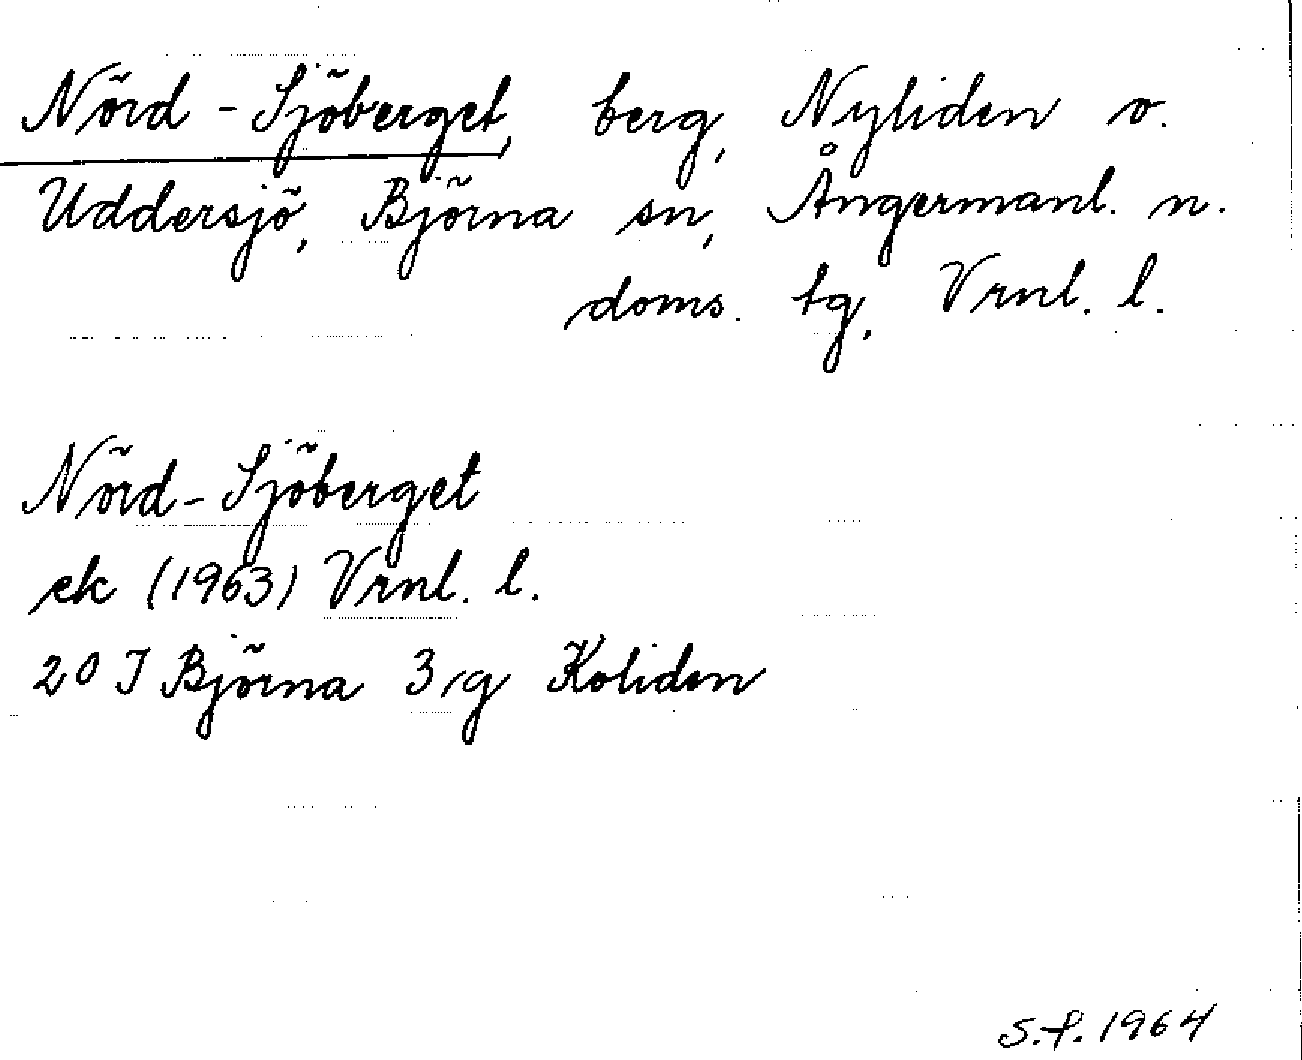 Nörd-Sjöberget, berg, Nyliden o.
Uddersjö, Björna sn, Ångermanl. n.
doms. tg, Vrnl. l.
Nörd-Sjöberget
ek (1963) Vrnl. l.
20 J Björna 3,g Koliden
S.P. 1964